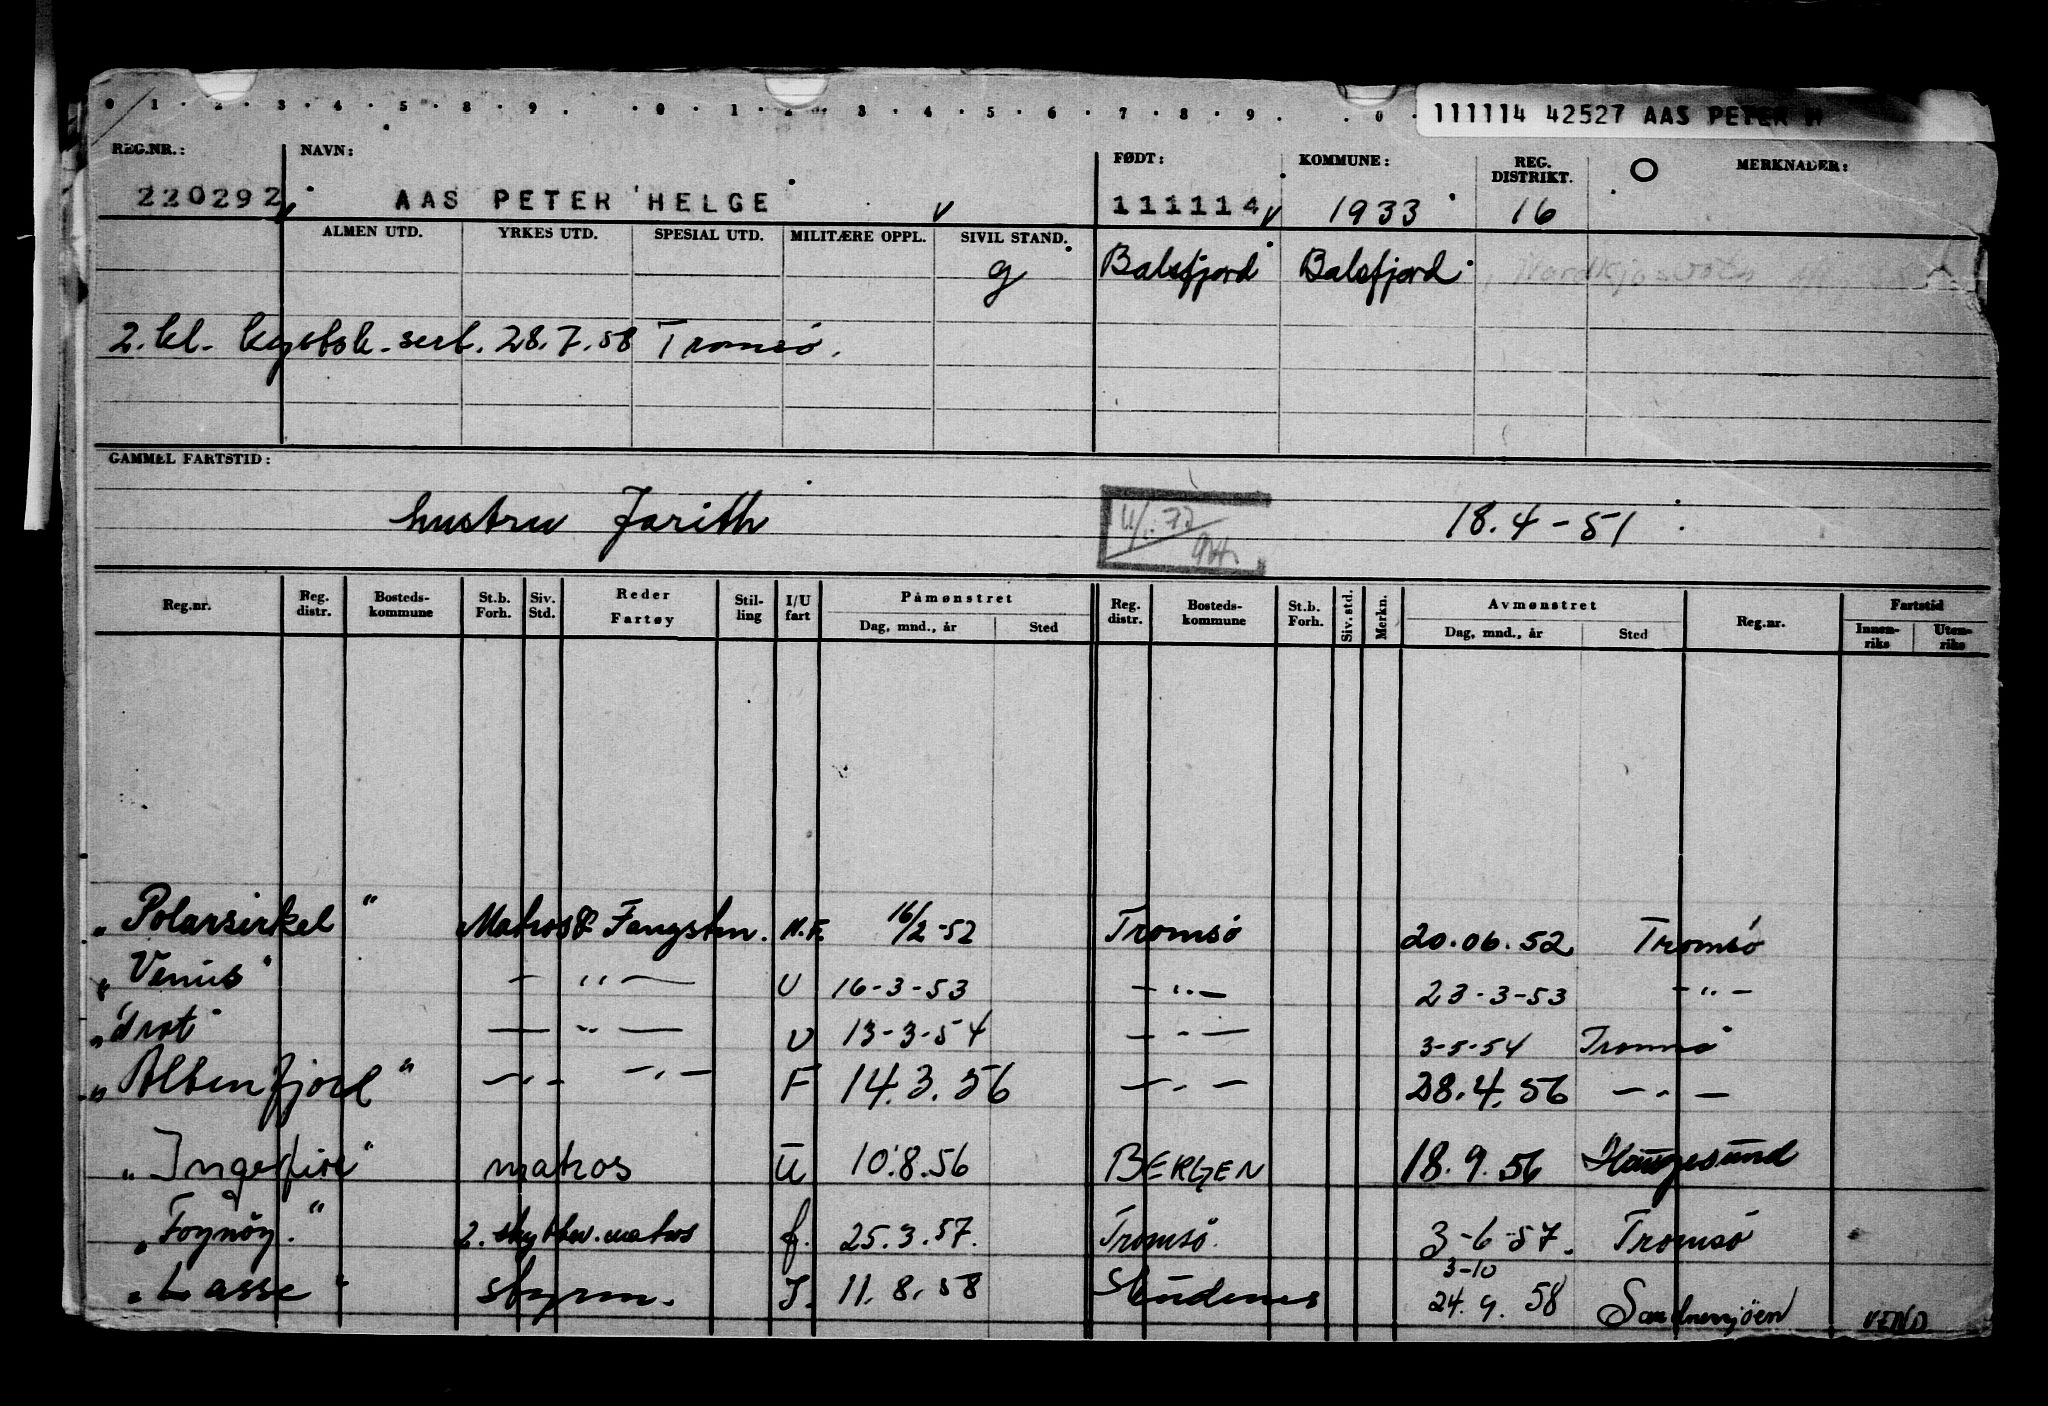 0 1 2 3 4 5 8 9 0 1 2 3 4 5 6 7 8 9 0
111114 42527 AAS PETER H
REG.NR.: NAVN: FØDT: KOMMUNE: REG. DISTRIKT. MERKNADER:
220292 AAS PETER HELGE 111114 1933 16
ALMEN UTD. YRKES UTD. SPESIAL UTD. MILITÆRE OPPL. SIVIL STAND.
g Balsfjord Balsfjord
2. kl. kystsk. sert. 28.7.58 Tromsö.
GAMMEL FARTSTID:
hustru Jorith 18.4-51
Reg.nr. Reg. distr. Bosteds-kommune St.b. Forh. Siv. Std. Reder Fartøy Stil-ling I/U fart Påmønstret Dag, mnd., år Sted Reg. distr. Bosteds-kommune St.b. Forh. Siv. std. Merkn. Avmønstret Dag, mnd., år Sted Reg.nr. Fartstid Innen-riks Uten-riks
"Polarsirkel" Matros & Fangstm. N.F. 16/2-52 Tromsö 20.06.52 Tromsö
"Venus" — " — U 16-3-53 — " — 23-3-53 — " —
"Trot" — " — U 13-3-54 — " — 3-5-54 Tromsö
" — " — — " — F 14.3.56 — " — 28.4.56 — " —
"Ingefire" matros U 10.8.56 BERGEN 18.9.56 Haugesund
"Foynöy." 2. skytter. matros f. 25.3.57. Tromsö. 3-6-57. Tromsö
3-10
"Lasse" styrm. I. 11.8.58 Skudenes 24.9.58 Sandnessjöen VEND